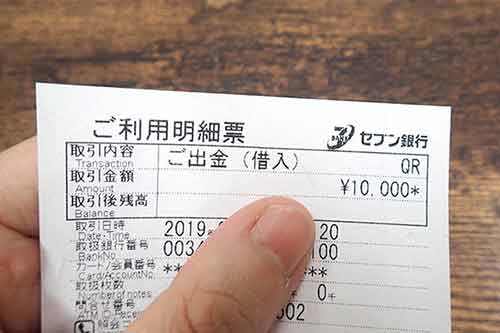 ご利用明細票 7 BANK セブン銀行
取引内容 ご出金（借入） QR
Transaction
取引金額 ¥10,000*
Amount
取引後残高
Balance
取引日時 2019 20
Date·Time
取扱銀行番号 0034 100
BankNo
カード/会員番号 ** ***
Card/AccountNo
取扱枚数 千 0千
Number of notes
問合せ番号 002
ATM ID
照会